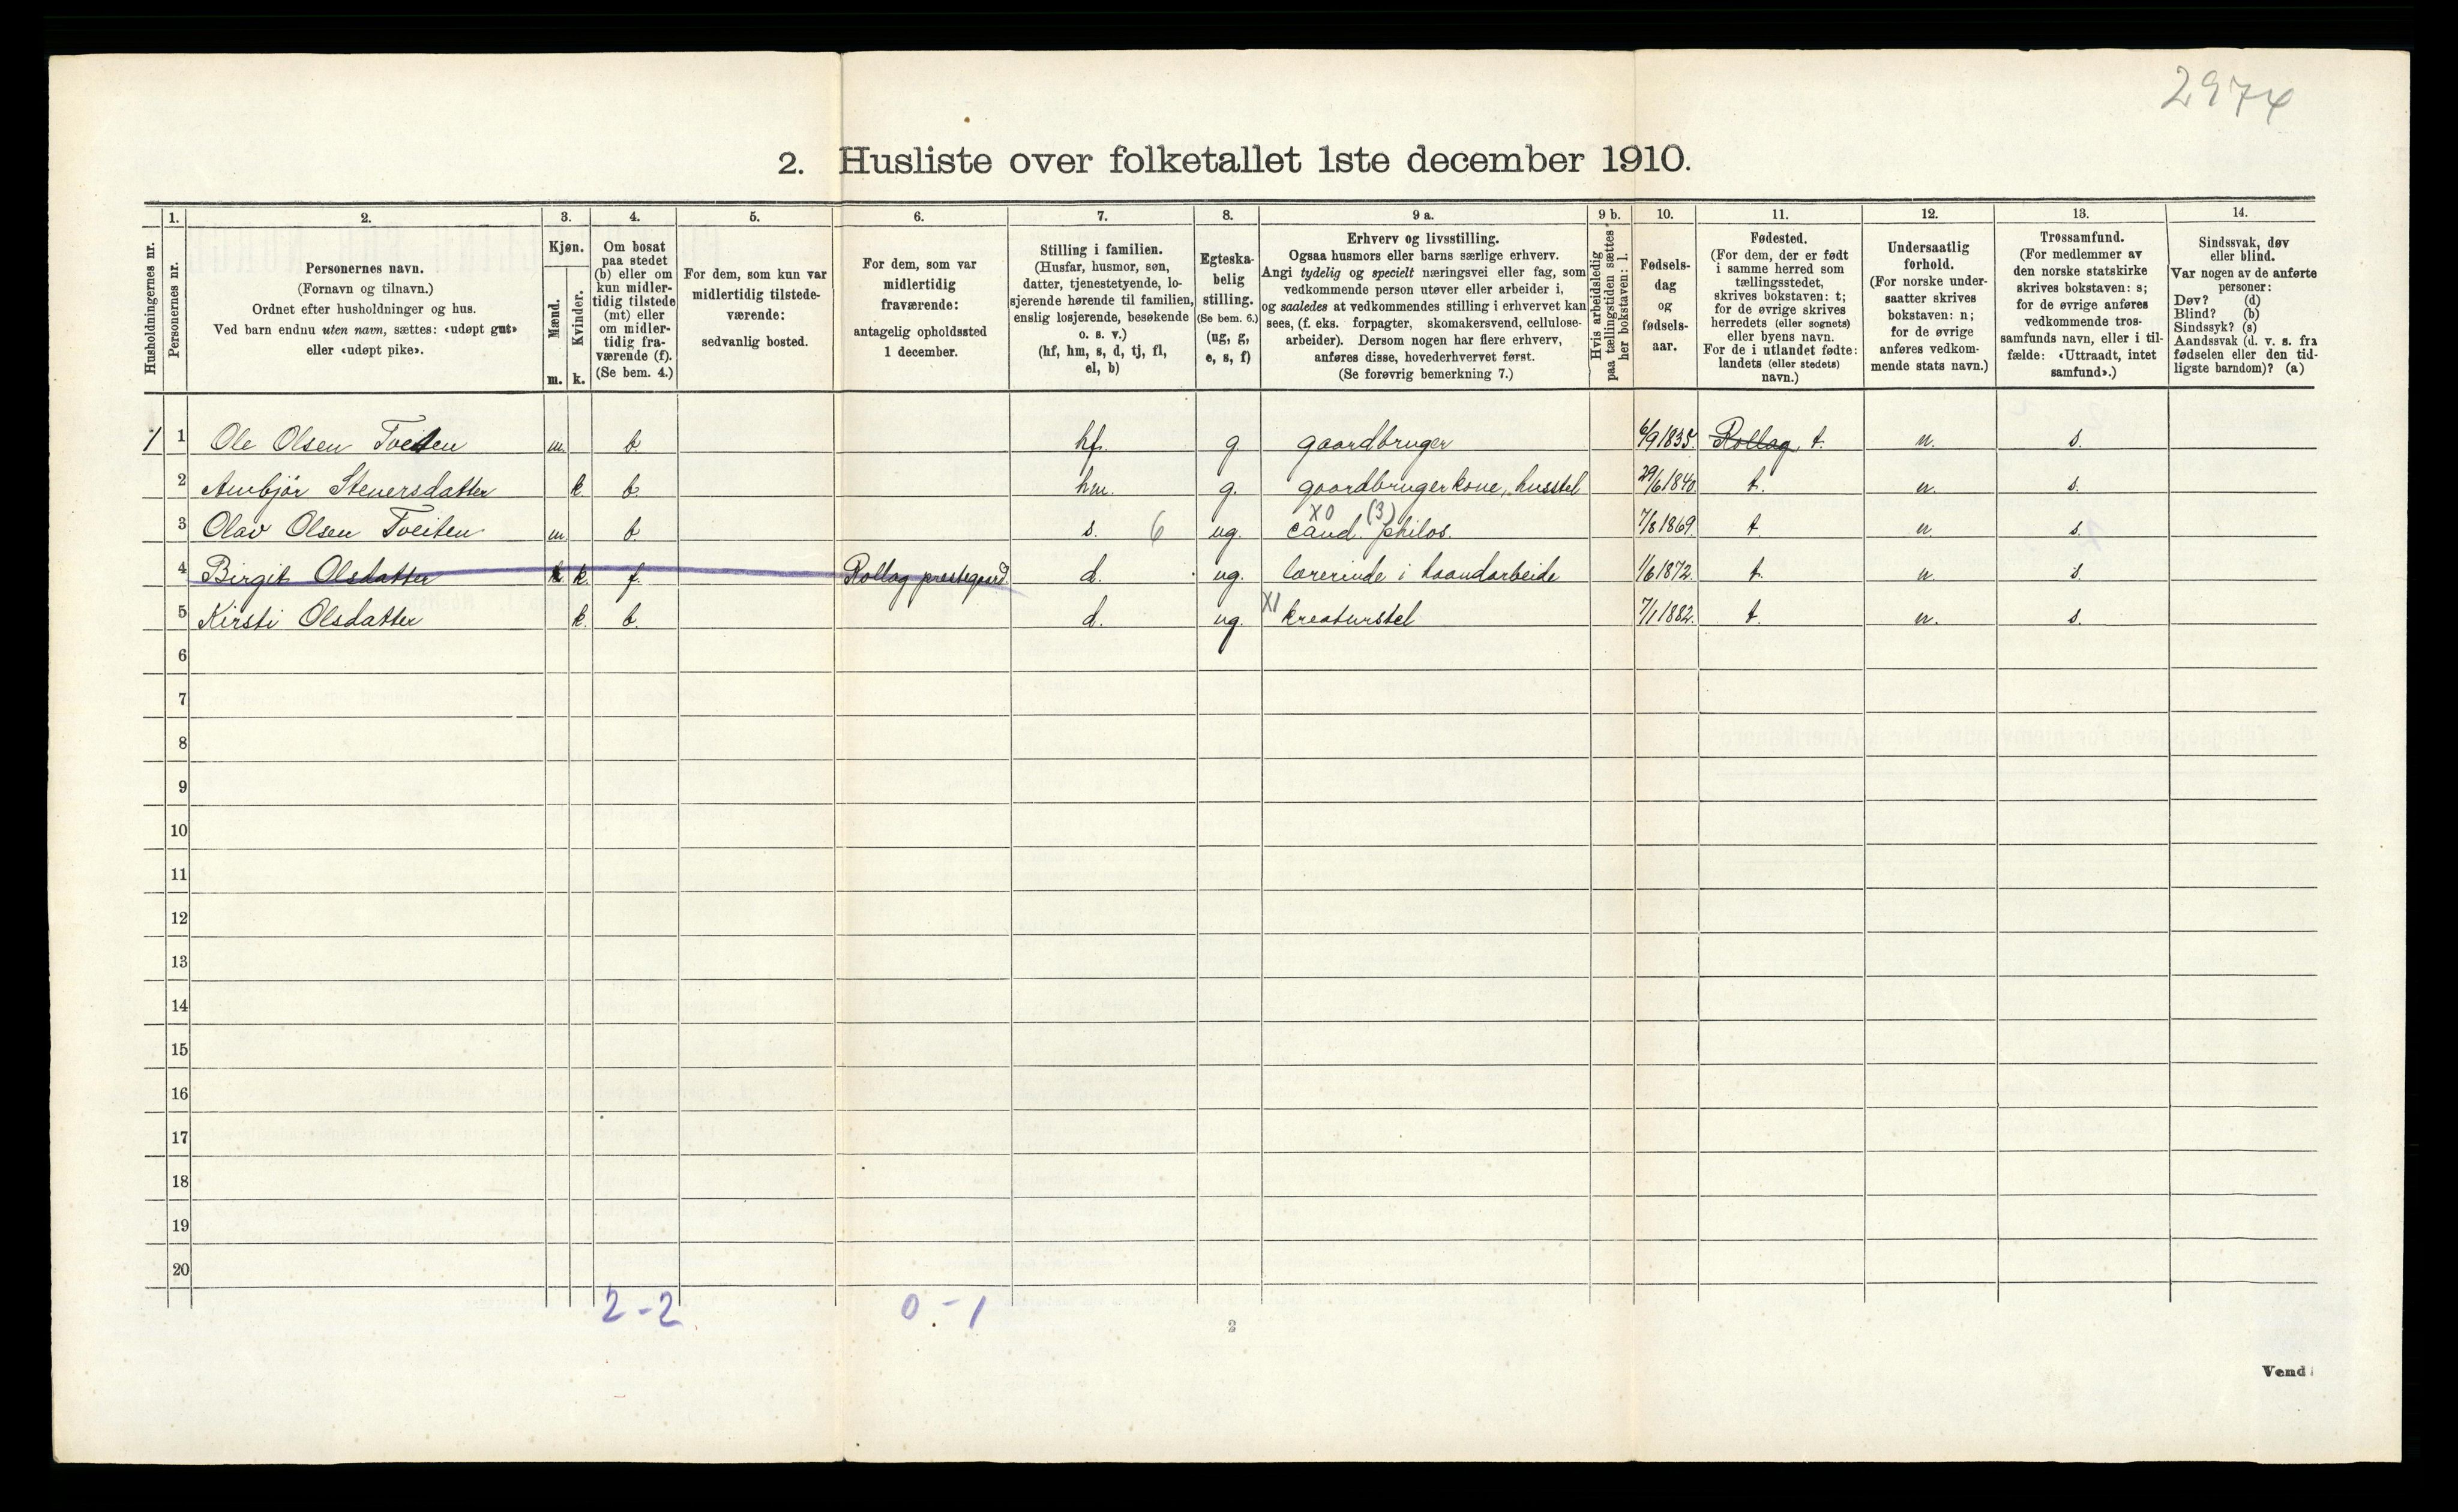 2974
2. Husliste over folketallet 1ste december 1910.
Husholdningernes nr.
1.
Personernes nr.
2.
Personernes navn.
(Fornavn og tilnavn.)
Ordnet efter husholdninger og hus.
Ved barn endnu uten navn, sættes: «udøpt gut»
eller «udøpt pike».
3.
Kjøn.
Mænd.
Kvinder.
m. k.
4.
Om bosat
paa stedet
(b) eller om
kun midler-
tidig tilstede
(mt) eller
om midler-
tidig fra-
værende (f).
(Se bem. 4.)
5.
For dem, som kun var
midlertidig tilstede-
værende:
sedvanlig bosted.
6.
For dem, som var
midlertidig
fraværende:
antagelig opholdssted
1 december.
7.
Stilling i familien.
(Husfar, husmor, søn,
datter, tjenestetyende, lo-
sjerende hørende til familien,
enslig losjerende, besøkende
o. s. v.)
(hf, hm, s, d, tj, fl,
el, b)
8.
Egteska-
belig
stilling.
(Se bem. 6.)
(ug, g,
e, s, f)
9 a.
Erhverv og livsstilling.
Ogsaa husmors eller barns særlige erhverv.
Angi tydelig og specielt næringsvei eller fag, som
vedkommende person utøver eller arbeider i,
og saaledes at vedkommendes stilling i erhvervet kan
sees, (f. eks. forpagter, skomakersvend, cellulose-
arbeider). Dersom nogen har flere erhverv,
anføres disse, hovederhvervet først.
(Se forøvrig bemerkning 7.)
9 b.
Hvis arbeidsledig
paa tællingstiden sættes
her bokstaven: l.
10.
Fødsels-
dag
og
fødsels-
aar.
11.
Fødested.
(For dem, der er født
i samme herred som
tællingsstedet,
skrives bokstaven: t;
for de øvrige skrives
herredets (eller sognets)
eller byens navn.
For de i utlandet fødte:
landets (eller stedets)
navn.)
12.
Undersaatlig
forhold.
(For norske under-
saatter skrives
bokstaven: n;
for de øvrige
anføres vedkom-
mende stats navn.)
13.
Trossamfund.
(For medlemmer av
den norske statskirke
skrives bokstaven: s;
for de øvrige anføres
vedkommende tros-
samfunds navn, eller i til-
fælde: «Uttraadt, intet
samfund».)
14.
Sindssvak, døv
eller blind.
Var nogen av de anførte
personer:
Døv? (d)
Blind? (b)
Sindssyk? (s)
Aandssvak (d. v. s. fra
fødselen eller den tid-
ligste barndom)? (a)
1 1 Ole Olsen Tveiten m. b. hf. g. gaardbruger 6/9 1835. Rollag t. n. s.
2 Ambjør Steversdatter k. b. hm. g. gaardbrugerkone, husstel 29/6 1840. t. n. s.
X0 (3)
3 Olav Olsen Tveiten m. b. s. 6 ug. cand. philos. 7/8 1869. t. n. s.
4 Birgit Olsdatter k. k. f. Rollag prestegaard. d. ug. lærerinde i haandarbeide 1/6 1872. t. n. s.
5 Kirsti Olsdatter k. b. d. ug. X1 kreaturstel 7/1 1882. t. n. s.
6
7
8
9
10
11
12
13
14
15
16
17
18
19
20
2-2 0-1
2
Vend